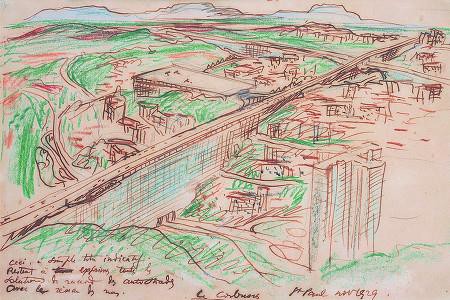 ceci, à simple titre indicatif.
Restent à toutes les
solutions de raccord des autostrades
avec le réseau des rues.
Le Corbusier St Paul nov 1929.